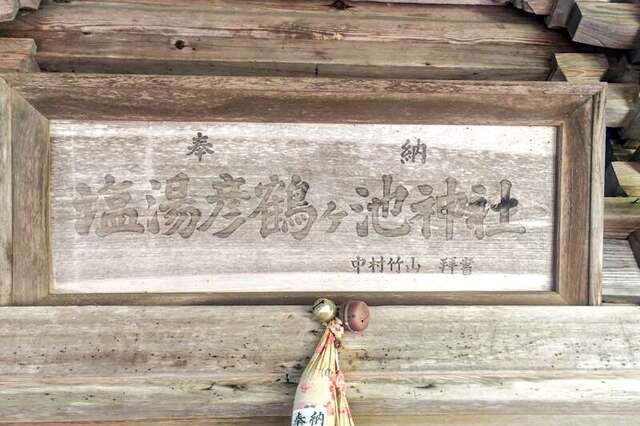 奉 納
塩湯彦鶴ヶ池神社
中村竹山 拝書
奉納